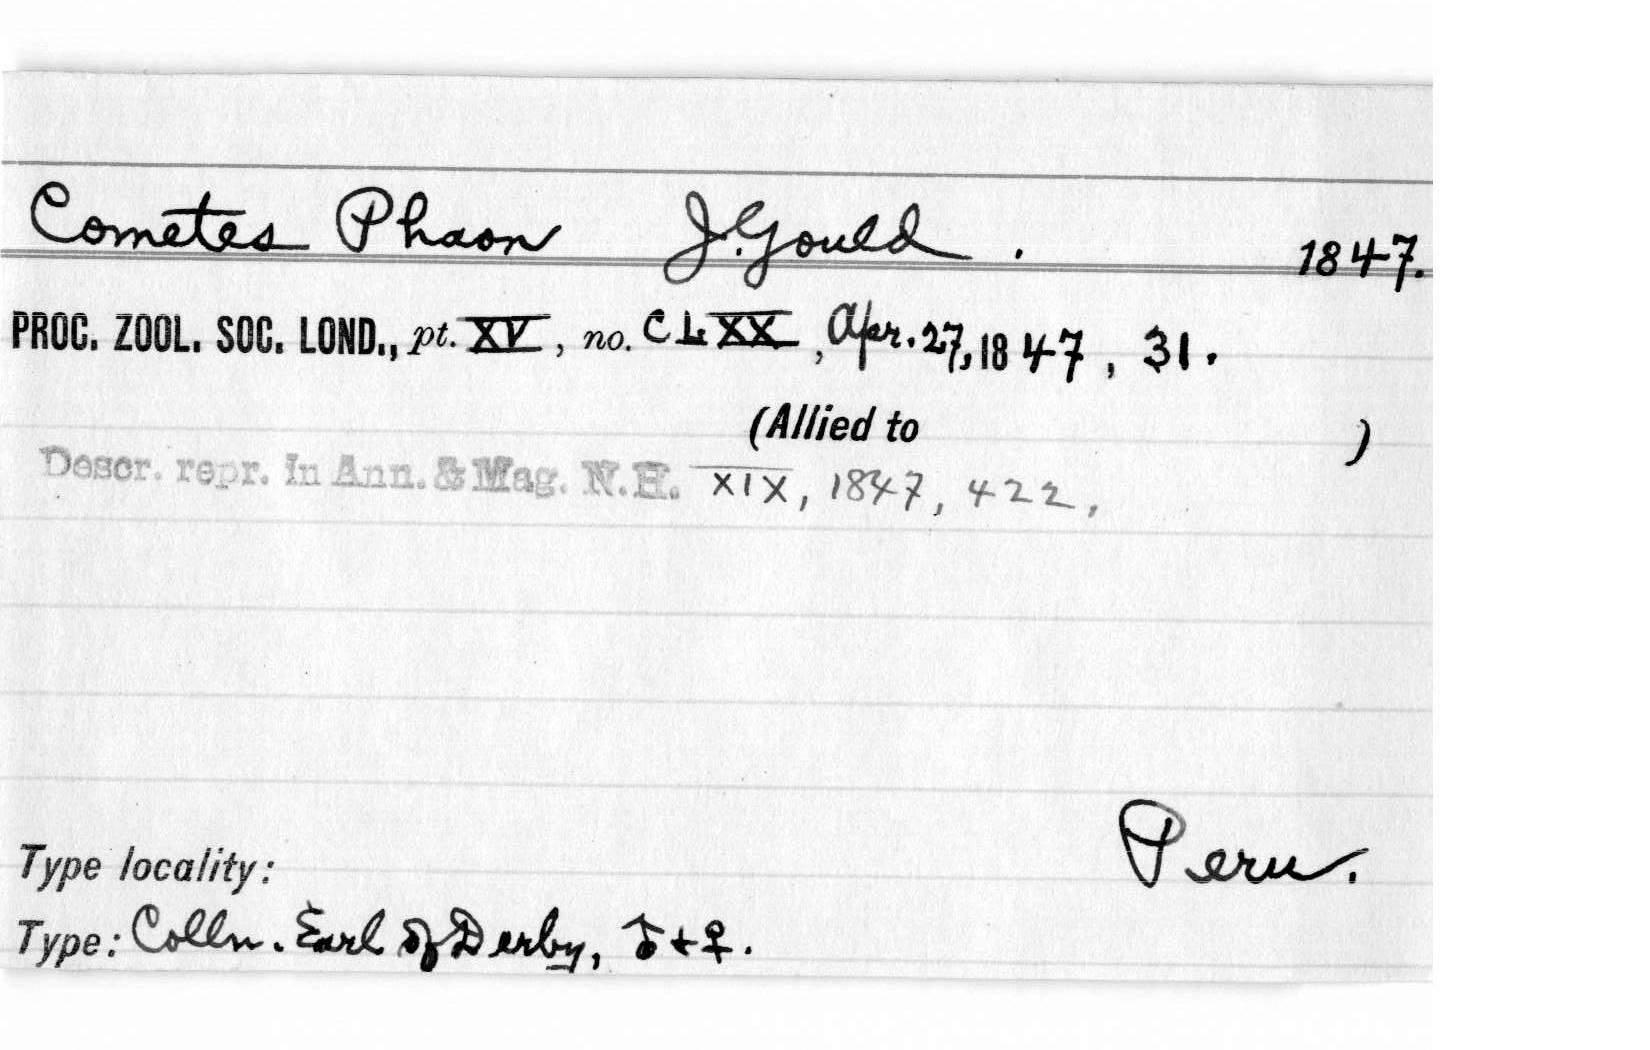 Cometes Phaon J. Gould. 1847.
PROC. ZOOL. SOC. LOND., pt. XV, no. CLXX, Apr. 27, 1847, 31.
(Allied to )
Descr. repr. in Ann. & Mag. N.H. XIX, 1847, 422,
Peru.
Type locality:
Type: Colln. Earl of Derby, ♂ + ♀.